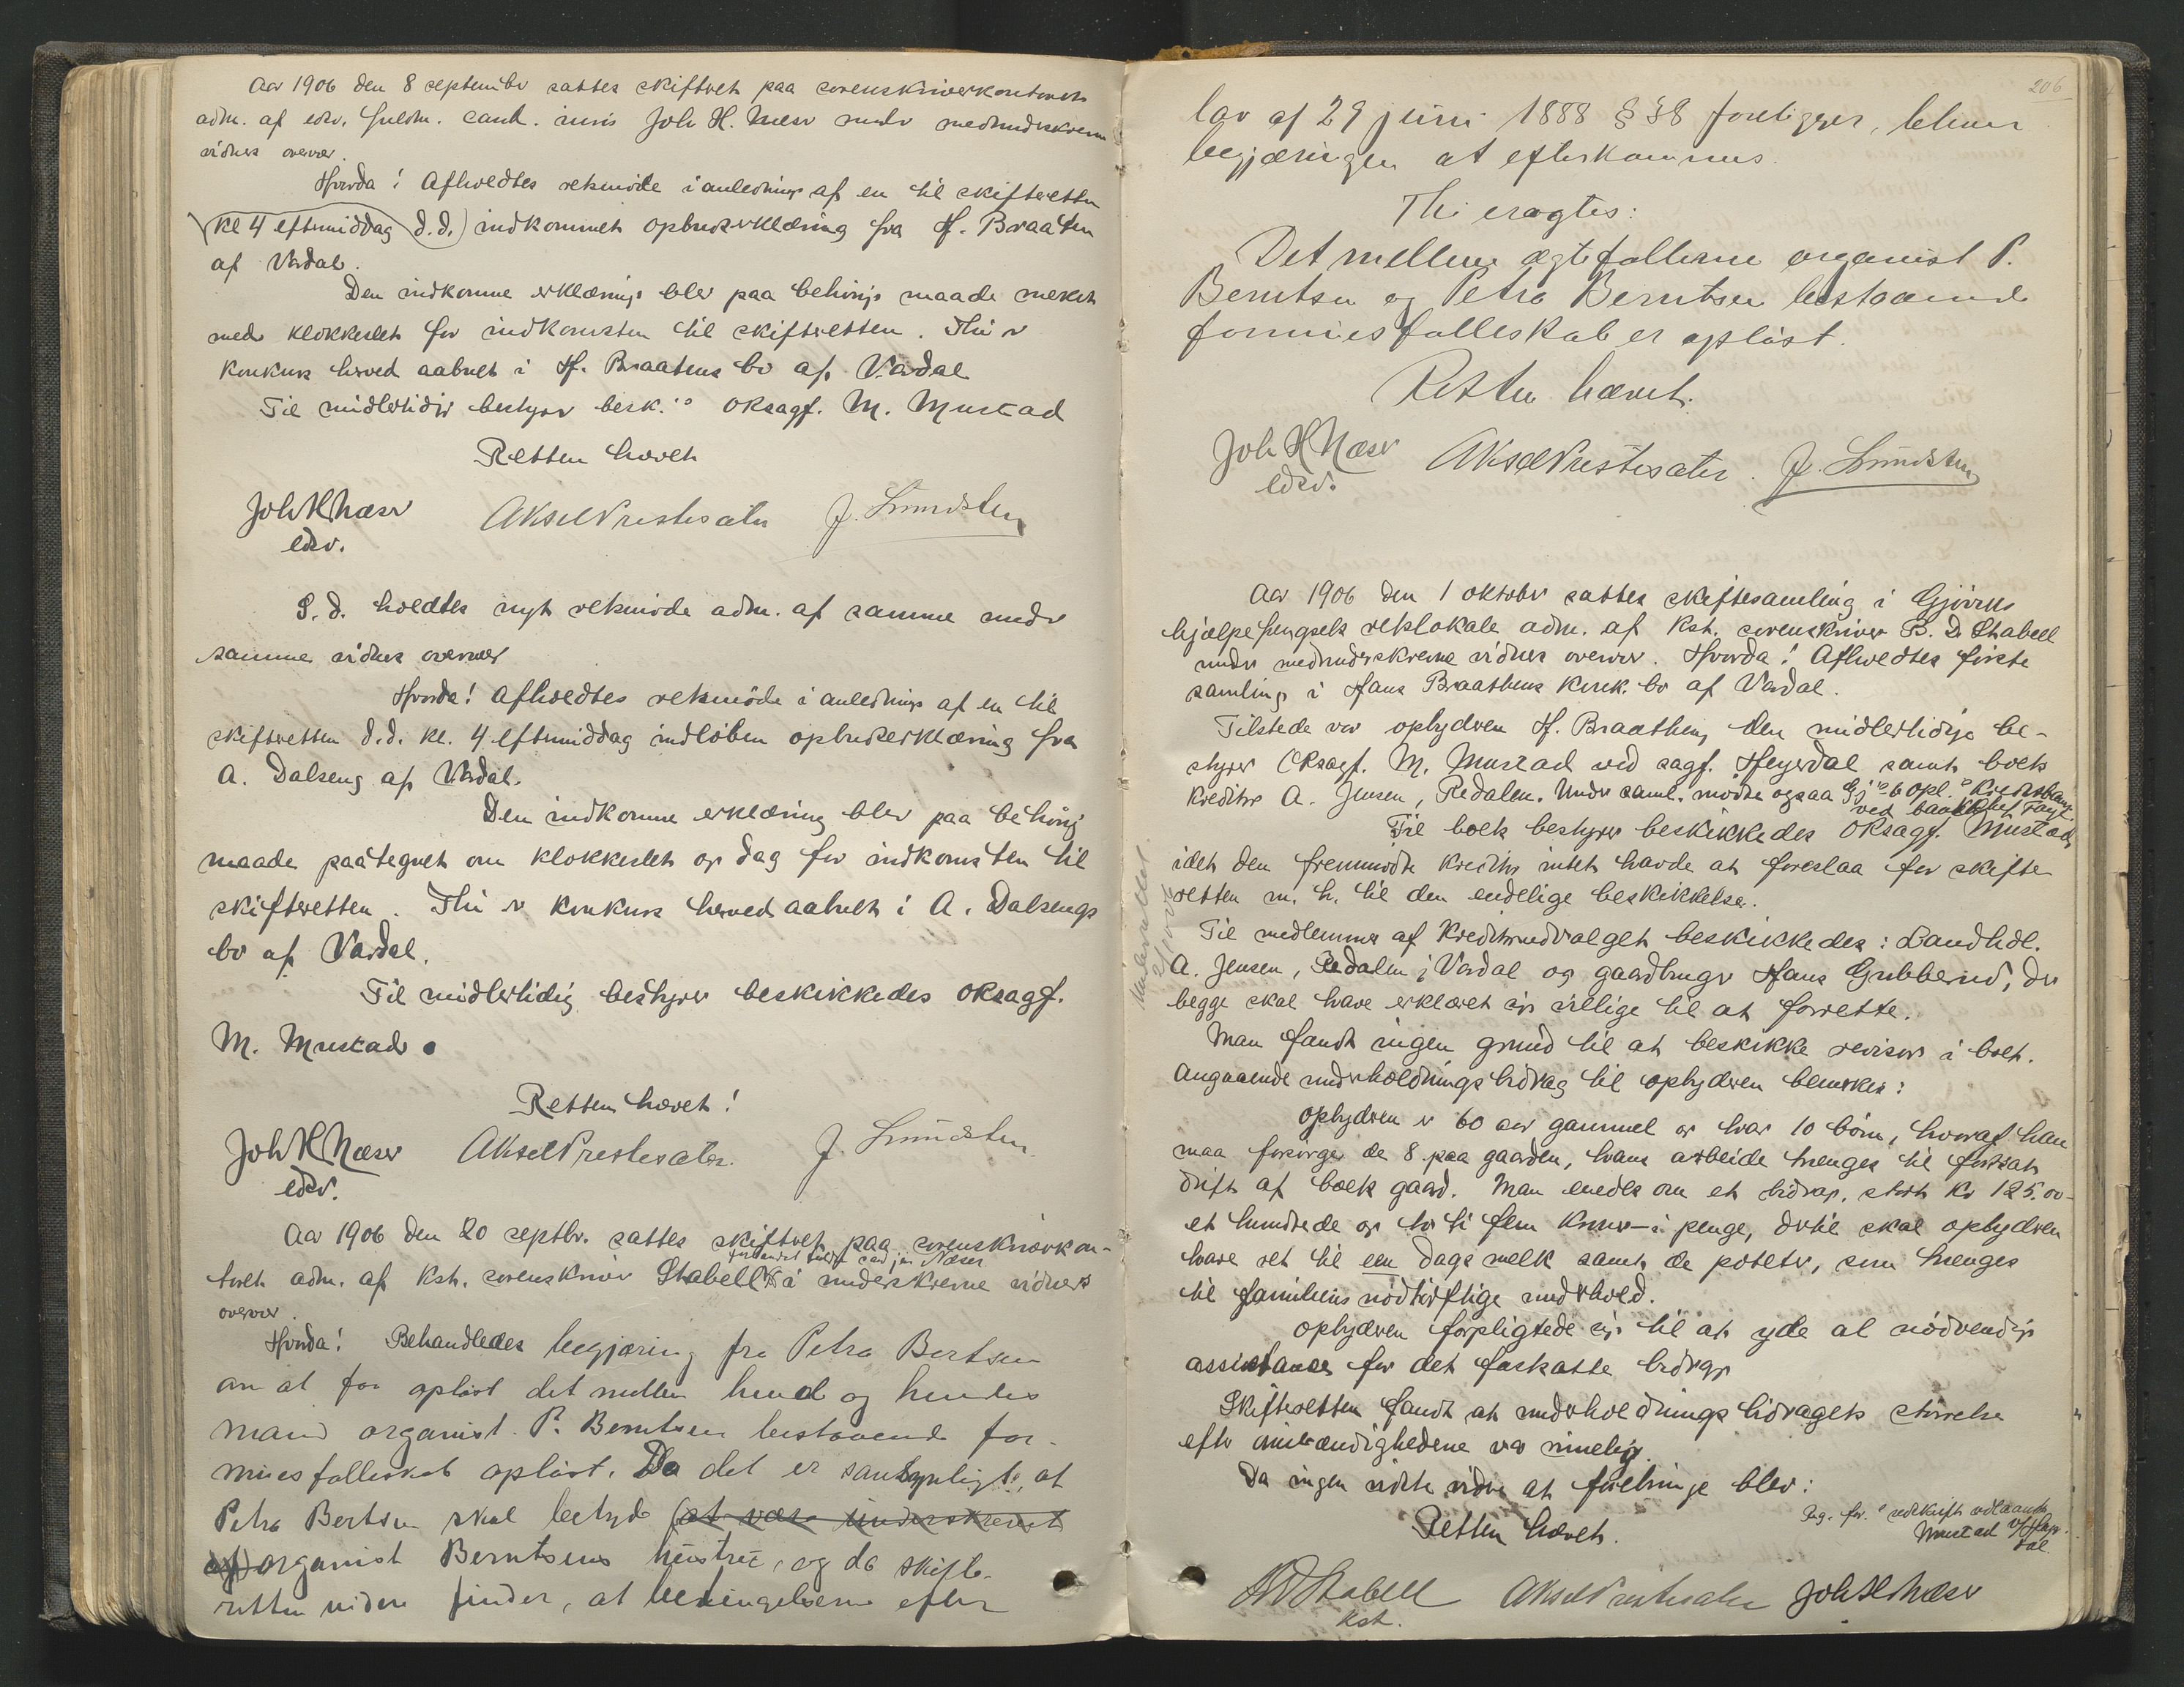 Aar 1906 den 8 september sattes skifteret paa sorenskriverkontoret
adm. af edsv. fuldm. cand. juris Joh H. Næser under medunderskrevne
vidners overvær.
Hvorda! Afholdtes retsmöde i anledning af en til skifteretten
(kl 4 eftermiddag d.d.) indkommet opbudserklæring fra H. Braaten
af Vardal.
Den indkomne erklæring blev paa behörig maade merket
med klokkeslet for indkomsten til skifteretten. Thi er
konkurs herved aabnet i H. Braatens bo af Vardal
Til midlertidig bestyrer besk. oksagf. M. Mustad
Retten hævet
Joh H Næser Aksel Prestesater J. Lundsten
edsv.
S. d. holdtes nyt retsmöde adm. af samme under
samme vidners overvær
Hvorda! Afholdtes retsmöde i anledning af en til
skifteretten d.d. kl. 4 eftermiddag indlöben opbudserklæring fra
A. Dalseng af Vardal.
Den indkomne erklæring blev paa behörig
maade paategnet om klokkeslet og dag for indkomsten til
skifteretten. Thi er konkurs herved aabnet i A. Dalsengs
bo af Vardal.
Til midlertidig bestyrer beskikkedes oksagf.
M. Mustad.
Retten hævet!
Joh H Næser Aksel Prestesater J. Lundsten
edsv.
Aar 1906 den 20 septbr. sattes skifteret paa sorenskriverkon-
toret adm. af Kst. sorenskriver Stabell i underskrevne vidners
overvær.
Hvorda! Behandledes begjæring fra Petra Bertsen
om at faa oplöst det mellem hende og hendes
mand organist P. Berntsen bestaaende for-
muesfælleskab oplöst. Da det er sansynligt, at
Petra Bertsen skal betyde (at være underskrevet
af) organist Berntsens hustru, og da skifte-
retten videre finder, at betingelserne efter
206
lov af 29 juni 1888 § 38 foreligger, bliver
begjæringen at efterkommes.
Thi eragtes:
Det mellem ægtefællerne organist P.
Berntsen og Petra Berntsen bestaaende
formuesfælleskab er oplöst.
Retten hævet.
Joh H Næser Aksel Prestesater. J. Lundsten
edsv.
Aar 1906 den 1 oktober sattes skiftesamling i Gjöviks
hjælpefengsels retslokale adm. af Kst. sorenskriver B. D. Stabell
under medunderskrevne vidners overvær. Hvorda! Afholdtes förste
samling i Hans Braathens konk. bo af Vardal.
Tilstede var opbyderen H. Braathen, den midlertidige be-
styrer Oksagf. M. Mustad ved sagf. Heyerdal samt boets
kreditor A. Jensen, Redalen. Under saml. mödte ogsaa Gj. o. opl. Kreditbank
ved bankchef
Til boets bestyrer beskikkedes Oksagf. Mustad
idet den fremmödte kreditor intet havde at foreslaa for skifte-
retten m. h. til den endelige beskikkelse.
Til medlemmer af kreditorudvalget beskikkedes: Landhdl.
A. Jensen, Redalen i Vardal og gaardbruger Hans Grubberud, der
begge skal have erklæret sig villige til at forrette.
Man fandt ingen grund til at beskikke revisor i boet.
Angaaende underholdningsbidrag til opbyderen bemerkes:
opbyderen er 60 aar gammel og har 10 börn, hvoraf han
maa forsörge de 8 paa gaarden, hans arbeide trenges til fortsat
drift af boets gaard. Man enedes om et bidrag, stort kr 125.00
et hundrede og to ti fem kroner i penge, dertil skal opbyderen
have ret til een dags melk samt de poteter, som trenges
til familiens nödtörftige underhold.
opbyderen forpligtede sig til at yde al nödvendig
assistance for det fastsatte bidrag
Skifteretten fandt at underholdningsbidragets störrelse
efter omstændighederne var rimelig.
Da ingen vidste videre at frembringe blev:
Retten hævet.
Beg. for. udskrift udlaant
Mustad v/ Heyer-
dal
B D Stabell Aksel Prestesater Joh H Næser
Kst.